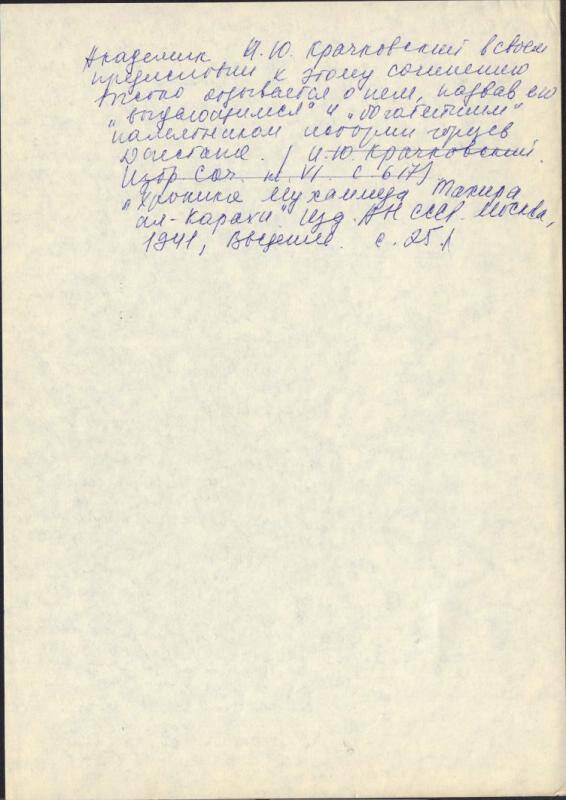 Академик И.Ю. Крачковский в своем
предисловии к этому сочинению
высоко отзывается о нем, назвав его
„выдающимся“ и „богатейшим“
памятником истории горцев
Дагестана. / И.Ю. Крачковский.
Избр. соч. т. VI. с. 617/
„Хроника Мухаммеда Тахира
ал-Карахи“ Изд. АН СССР. Москва,
1941, Введение. с. 25/